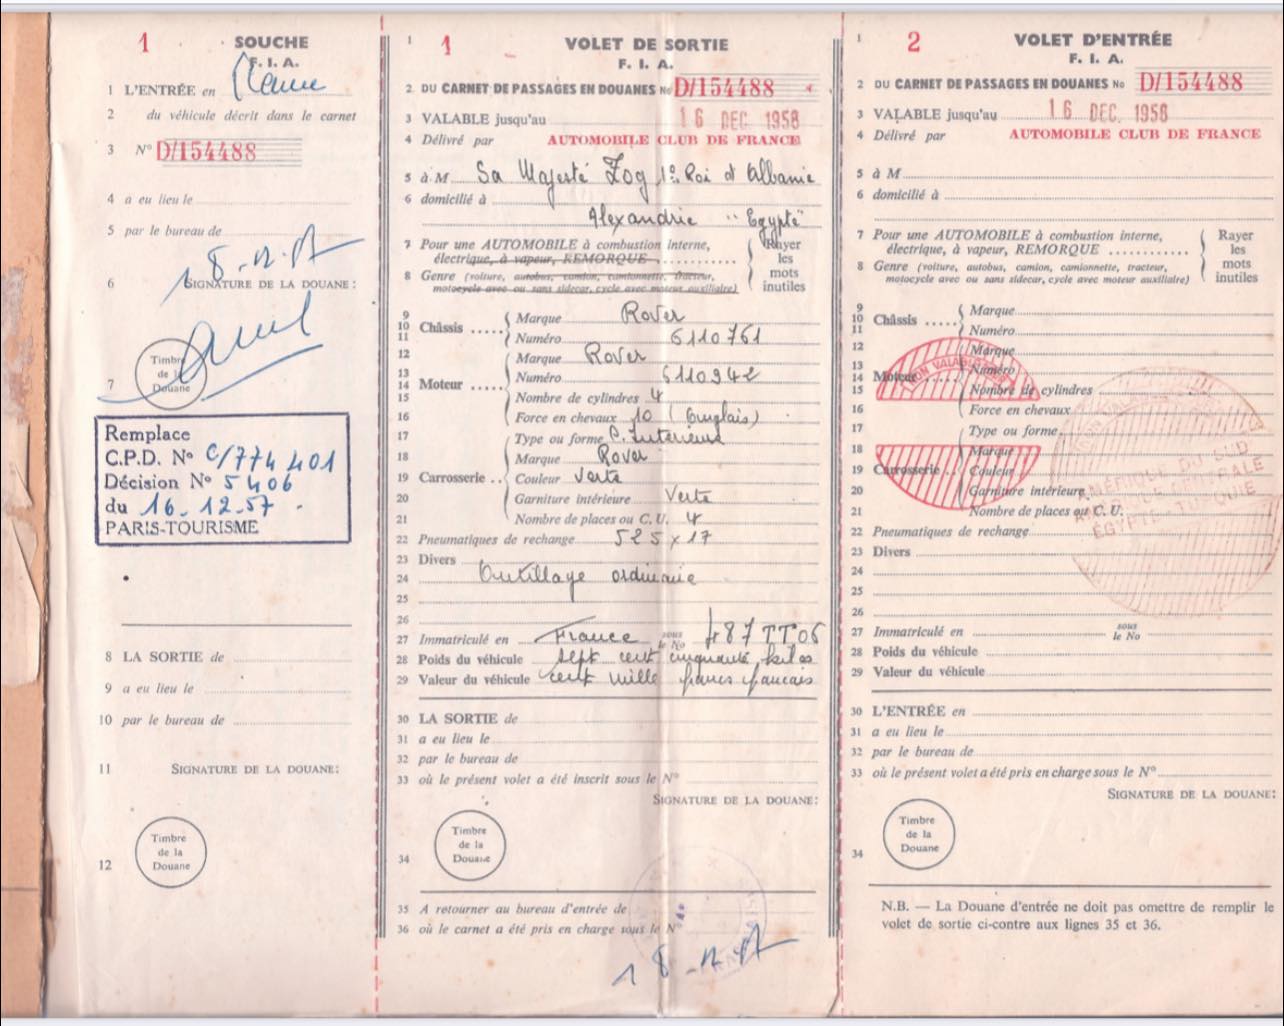 1 SOUCHE
F. I. A.
1 L'ENTRÉE en
2 du véhicule décrit dans le carnet
3 N° D/154488
4 a eu lieu le
5 par le bureau de
18-12-57
6 SIGNATURE DE LA DOUANE :
7 Timbre de la Douane
Remplace
C.P.D. N° C/774401
Décision N° 5406
du 16.12.57.
PARIS-TOURISME
8 LA SORTIE de
9 a eu lieu le
10 par le bureau de
11 SIGNATURE DE LA DOUANE:
12 Timbre de la Douane
1 1 VOLET DE SORTIE
F. I. A.
2 DU CARNET DE PASSAGES EN DOUANES No D/154488
3 VALABLE jusqu'au 16 DEC 1958
4 Délivré par AUTOMOBILE CLUB DE FRANCE
5 à M Sa Majesté Zog 1° Roi d'Albanie
6 domicilié à
Alexandrie "Egypte"
7 Pour une AUTOMOBILE à combustion interne,
électrique, à vapeur, REMORQUE
8 Genre (voiture, autobus, camion, camionnette, tracteur,
motocycle avec ou sans sidecar, cycle avec moteur auxiliaire)
Rayer les mots inutiles
9
10 Châssis
11
Marque Rover
Numéro 6110761
12 Marque Rover
13 Numéro 6110942
14 Moteur
15 Nombre de cylindres 4
16 Force en chevaux 10 (Anglais)
17 Type ou forme C. Interieure
18 Marque Rover
19 Carrosserie Couleur Verte
20 Garniture intérieure Verte
21 Nombre de places ou C. U. 4
22 Pneumatiques de rechange 525 x 17
23 Divers
24 Outillage ordinaire
25
26
27 Immatriculé en France sous le No 487 TT 06
28 Poids du véhicule sept cent cinquante kilos
29 Valeur du véhicule cent mille francs francais
30 LA SORTIE de
31 a eu lieu le
32 par le bureau de
33 où le présent volet a été inscrit sous le N°
SIGNATURE DE LA DOUANE:
34 Timbre de la Douane
35 A retourner au bureau d'entrée de
36 où le carnet a été pris en charge sous le N°
18-12-57
1 2 VOLET D'ENTRÉE
F. I. A.
2 DU CARNET DE PASSAGES EN DOUANES No D/154488
3 VALABLE jusqu'au 16 DEC. 1958
4 Délivré par AUTOMOBILE CLUB DE FRANCE
5 à M
6 domicilié à
7 Pour une AUTOMOBILE à combustion interne,
électrique, à vapeur, REMORQUE
8 Genre (voiture, autobus, camion, camionnette, tracteur,
motocycle avec ou sans sidecar, cycle avec moteur auxiliaire)
Rayer les mots inutiles
9
10 Châssis
11
Marque
Numéro
12 Marque
13 Numéro
14 Moteur
15 Nombre de cylindres
16 Force en chevaux
17 Type ou forme
18 Marque
19 Carrosserie Couleur
20 Garniture intérieure
21 Nombre de places ou C. U.
NON VALABLE
AMÉRIQUE DU SUD
AMÉRIQUE CENTRALE
ÉGYPTE - TURQUIE
22 Pneumatiques de rechange
23 Divers
24
25
26
27 Immatriculé en sous le No
28 Poids du véhicule
29 Valeur du véhicule
30 L'ENTRÉE en
31 a eu lieu le
32 par le bureau de
33 où le présent volet a été pris en charge sous le N°
SIGNATURE DE LA DOUANE:
34 Timbre de la Douane
N.B. — La Douane d'entrée ne doit pas omettre de remplir le
volet de sortie ci-contre aux lignes 35 et 36.